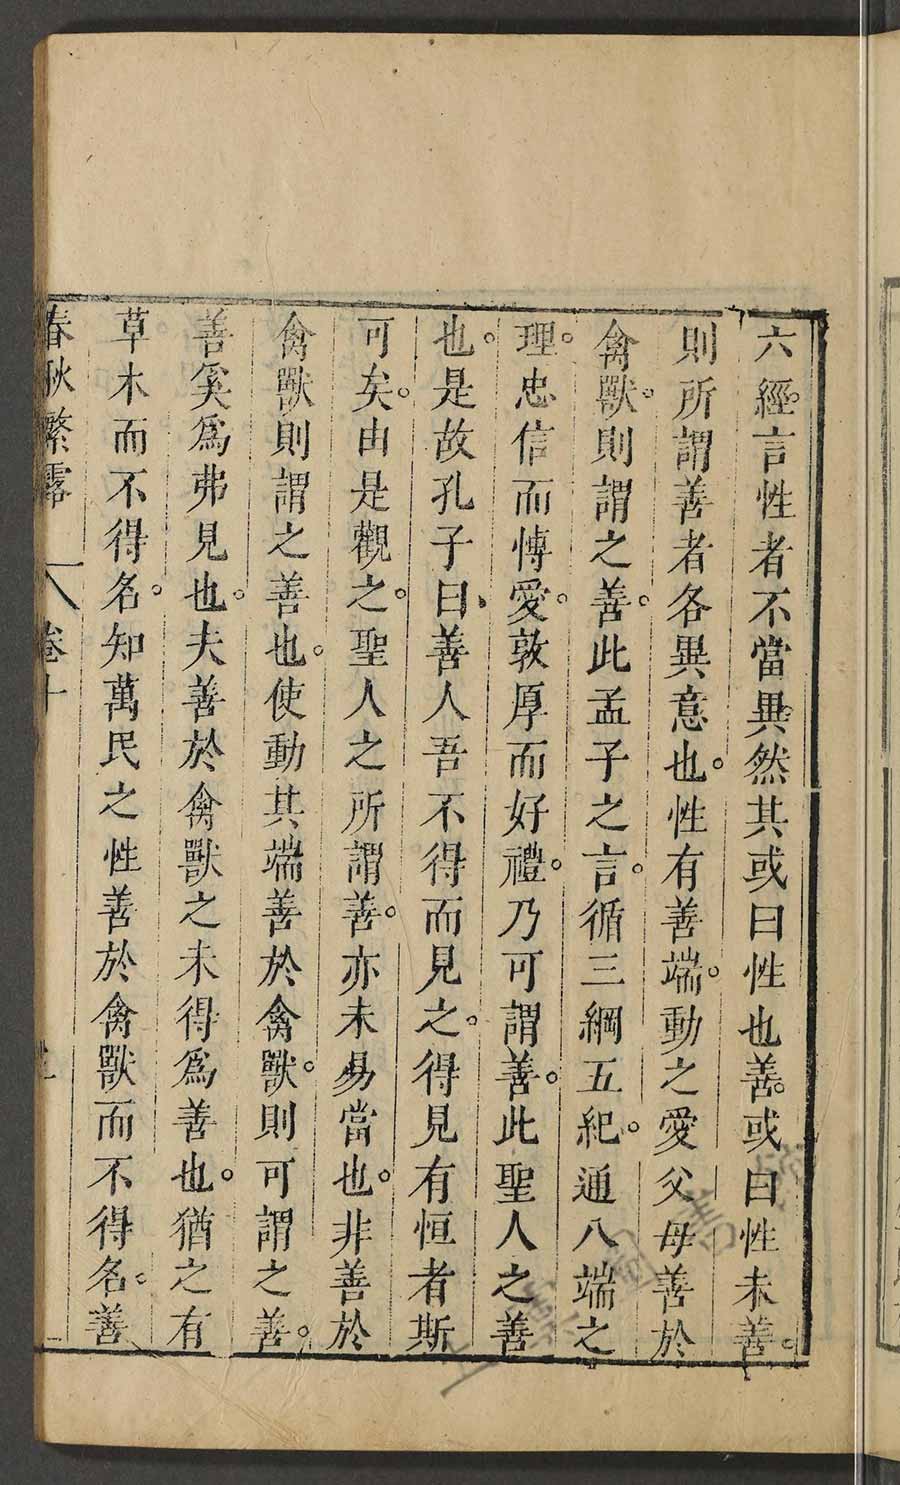 六經言性者不當異然其或曰性也善或曰性未善。
則所謂善者各異意也。性有善端。動之愛父母善於
禽獸。則謂之善。此孟子之言。循三綱五紀。通八端之
理。忠信而愽愛。敦厚而好禮。乃可謂善。此聖人之善
也。是故孔子曰、善人吾不得而見之。得見有恒者斯
可矣。由是觀之。聖人之所謂善。亦未易當也。非善於
禽獸則謂之善也。使動其端善於禽獸。則可謂之善。
善奚爲弗見也。夫善於禽獸之未得爲善也。猶之有
草木而不得名。知萬民之性善於禽獸而不得名。善
春秋繁露 卷十